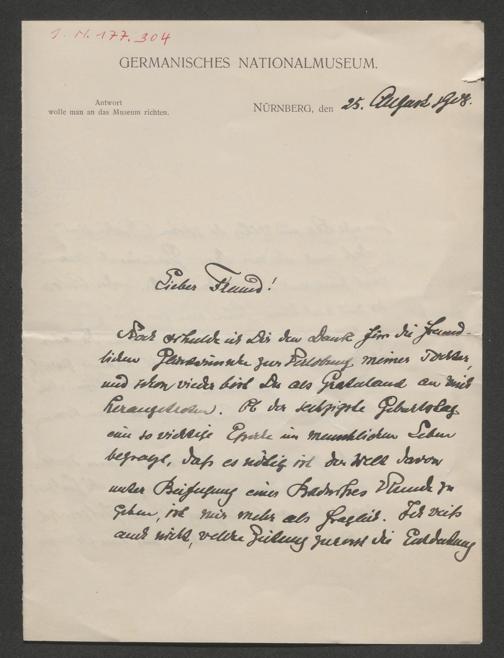 I. N. 177.304
GERMANISCHES NATIONALMUSEUM.
Antwort
wolle man an das Museum richten.
NÜRNBERG, den 25. August 1908.
Lieber Freund!
Noch schulde ich Dir den Dank für die freund-
lichen Glückwünsche zur Verlobung meiner Tochter,
und schon wieder bist Du als Gratulant an mich
herangetreten. Ob der sechzigste Geburtstag
eine so wichtige Epoche im menschlichen Leben
besagt, daß es nötig ist der Welt davon
unter Beifügung eines Kunde zu
geben, ist mir mehr als fraglich. Ich weiß
auch nicht, welche Zeitung zuerst die Entdeckung